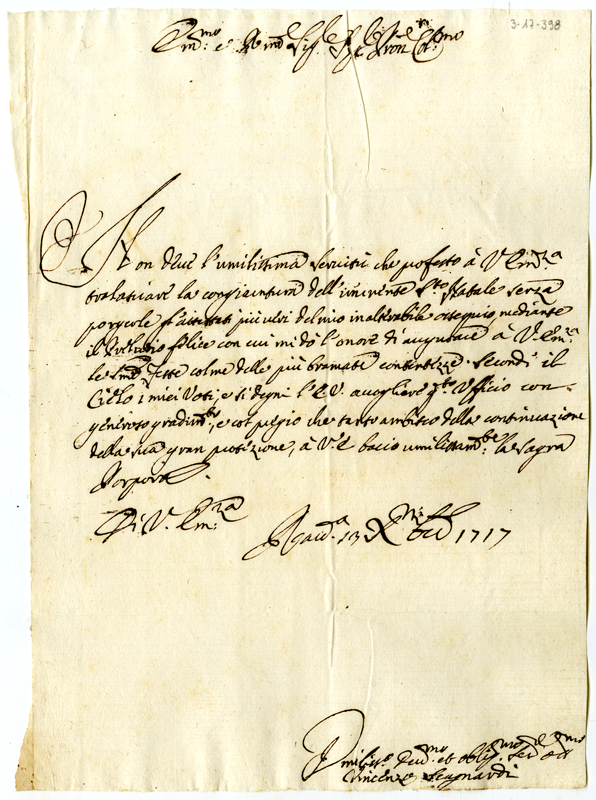 3-17-398
Em:mo e R.md Sig.r Sig.r Pron Col:mo
Non deve l'umilissima servitù che professo à V. Em:za
tralasciare la congiuntura dell'imminente S.to Natale senza
porgerle gl'attestati più vivi del mio inalterabile ossequio mediante
il felice con cui mi dò l'onore di augurare à V. Em:za
le Feste colme delle più bramate contentezze. Secondi il
Cielo i miei Voti, e si degni l'E.V. accogliere q.to Ufficio con
generoso gradim.to, e col pregio che tanto ambisco della continuazione
della sua gran protezione, à V.E. bacio umilissam.te la Sagra
Porpora.
Di V. Em:za
13 Xbre 1717
Umiliss.o Dev.mo et oblig.mo Ser.
Vincenzo